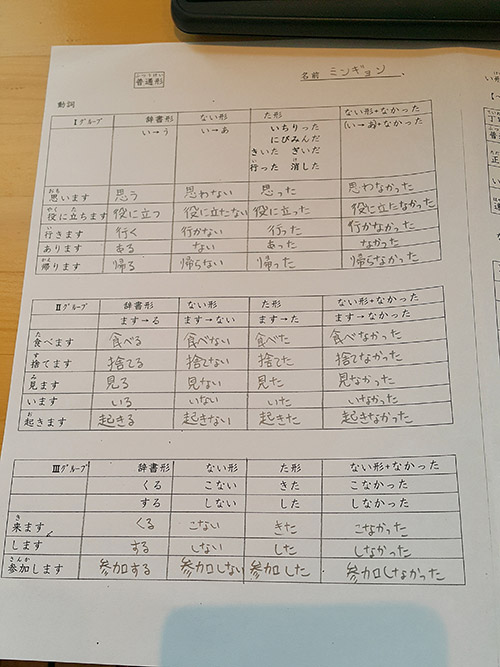 ふつうけい
普通形
名前 ミンギョン
動詞
Ⅰグループ 辞書形 ない形 た形 ない形+なかった
い→う い→あ いちりった (い→あ)+なかった
にびみんだ
きいた ぎいだ
い け
行った 消した
おも
思います 思う 思わない 思った 思わなかった
やく た
役に立ちます 役に立つ 役に立たない 役に立った 役に立たなかった
い
行きます 行く 行かない 行った 行かなかった
あります ある ない あった なかった
かえ
帰ります 帰る 帰らない 帰った 帰らなかった
Ⅱグループ 辞書形 ない形 た形 ない形+なかった
ます→る ます→ない ます→た ます→なかった
た
食べます 食べる 食べない 食べた 食べなかった
す
捨てます 捨てる 捨てない 捨てた 捨てなかった
み
見ます 見る 見ない 見た 見なかった
います いる いない いた いなかった
お
起きます 起きる 起きない 起きた 起きなかった
Ⅲグループ 辞書形 ない形 た形 ない形+なかった
くる こない きた こなかった
する しない した しなかった
き
来ます くる こない きた こなかった
します する しない した しなかった
さんか
参加します 参加する 参加しない 参加した 参加しなかった